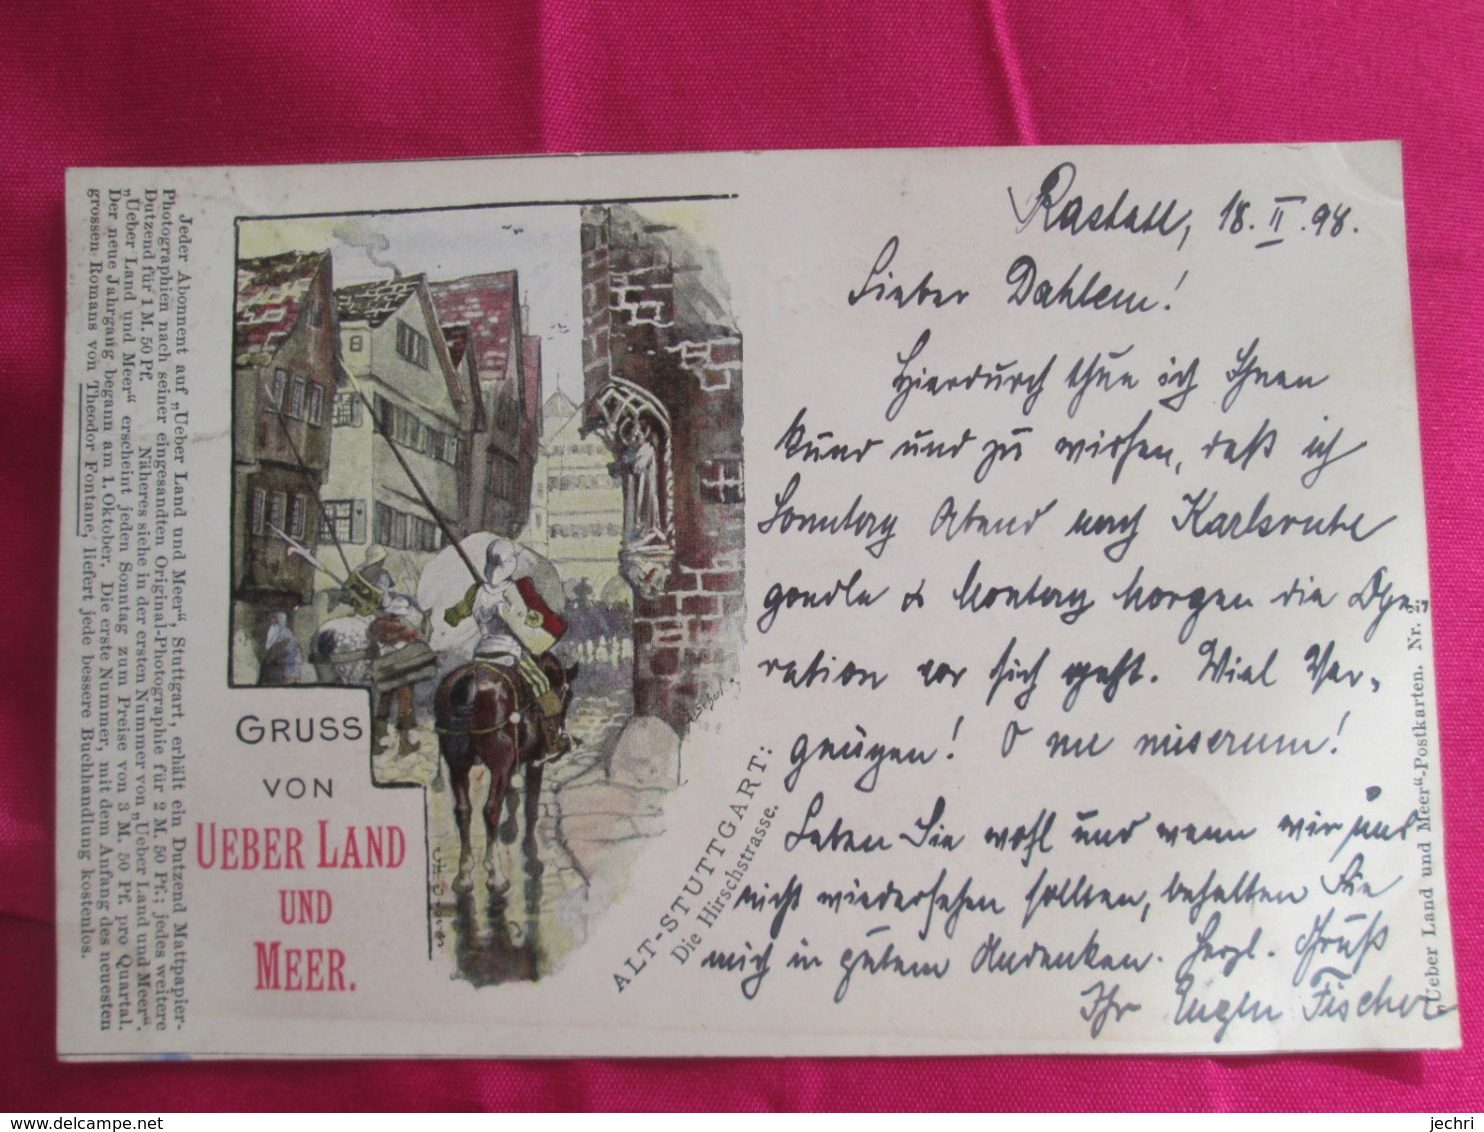 Jeder Abonnent auf „Ueber Land und Meer“, Stuttgart, erhält ein Dutzend Mattpapier-
Photographien nach seiner eingesandten Original-Photographie für 2 M. 50 Pf.; jedes weitere
Dutzend für 1 M. 50 Pf. Näheres siehe in der ersten Nummer von „Ueber Land und Meer“.
„Ueber Land und Meer“ erscheint jeden Sonntag zum Preise von 3 M. 50 Pf. pro Quartal.
Der neue Jahrgang begann am 1. Oktober. Die erste Nummer, mit dem Anfang des neuesten
grossen Romans von Theodor Fontane, liefert jede bessere Buchhandlung kostenlos.
GRUSS
VON
UEBER LAND
UND
MEER.
ALT-STUTTGART:
Die Hirschstrasse.
Rastatt, 18. II. 98.
Lieber Dahlem!
Hierdurch thue ich Ihnen
kund und zu wissen, daß ich
Sonntag Abend nach Karlsruhe
gondle & Montag Morgen die Ope-
ration vor sich geht. Viel Ver-
gnügen! O me miserum!
Leben Sie wohl und wenn wir uns
nicht wiedersehen sollten, behalten Sie
mich in gutem Andenken. Herzl. Gruß
Ihr Eugen Fischer
„Ueber Land und Meer“-Postkarten. Nr.
jechri